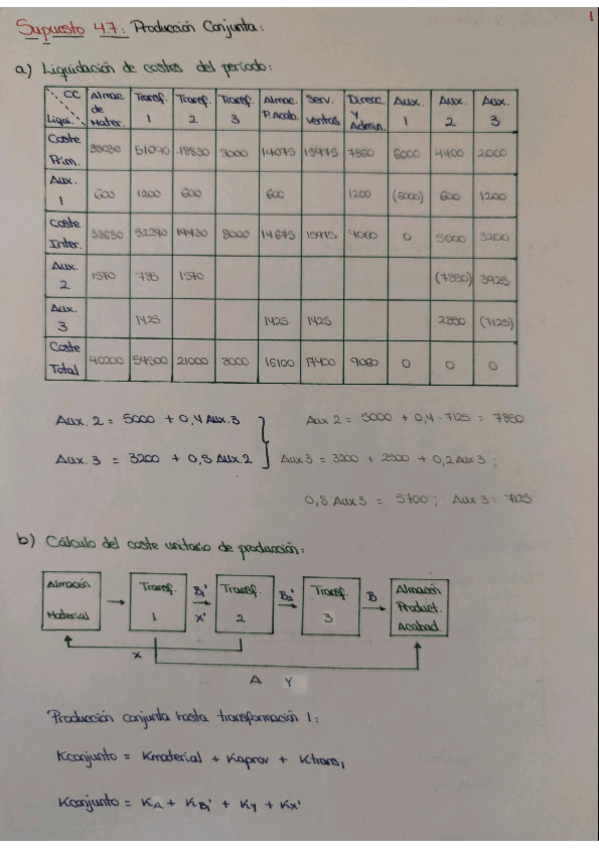 1
Supuesto 47: Producción Conjunta:
a) Liquidación de costes del período:
CC Liqui. | Almac. de Mater. | Transf. 1 | Transf. 2 | Transf. 3 | Almac. P. Acab. | Serv. Ventas | Direcc. y Admin. | Aux. 1 | Aux. 2 | Aux. 3
Coste Prim. | 38030 | 51090 | 18830 | 8000 | 14075 | 15975 | 7860 | 6000 | 4400 | 2000
Aux. 1 | 600 | 1200 | 600 | | 600 | | 1200 | (6000) | 600 | 1200
Coste Inter. | 38630 | 52290 | 19430 | 8000 | 14675 | 15975 | 9060 | 0 | 5000 | 3200
Aux. 2 | 1570 | 785 | 1570 | | | | | | (7850) | 3925
Aux. 3 | | 1425 | | | 1425 | 1425 | | | 2850 | (7125)
Coste Total | 40200 | 54500 | 21000 | 8000 | 16100 | 17400 | 9060 | 0 | 0 | 0
Aux. 2 = 5000 + 0,4 Aux. 3
Aux 2 = 5000 + 0,4 · 7125 = 7850
Aux. 3 = 3200 + 0,5 Aux. 2
Aux 3 = 3200 + 2500 + 0,2 Aux 3 ;
0,8 Aux 3 = 5700 ; Aux 3 = 7125
b) Cálculo del coste unitario de producción:
Almacén Material
Transf. 1
B1' X'
Transf. 2
B2'
Transf. 3
B
Almacén Product. Acabad.
X
A Y
Producción conjunta hasta transformación 1:
Kconjunto = Kmaterial + Kaprov + Ktrans1
Kconjunto = KA + KB1' + KY + KX'